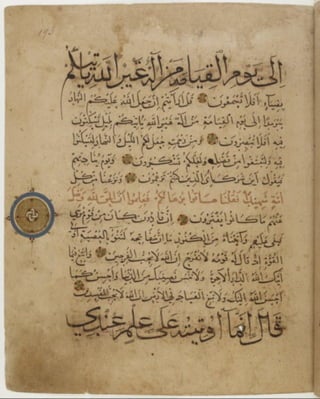 إلى يوم القيامة من إله غير الله يأتيكم
بضياء أفلا تسمعون قل أرأيتم إن جعل الله عليكم النهار
سرمدا إلى يوم القيامة من إله غير الله يأتيكم بليل تسكنون
فيه أفلا تبصرون ومن رحمته جعل لكم الليل والنهار لتسكنوا
فيه ولتبتغوا من فضله ولعلكم تشكرون ويوم يناديهم
فيقول أين شركائي الذين كنتم تزعمون ونزعنا من كل
أمة شهيدا فقلنا هاتوا برهانكم فعلموا أن الحق لله وضل
عنهم ما كانوا يفترون إن قارون كان من قوم موسى
فبغى عليهم وآتيناه من الكنوز ما إن مفاتحه لتنوء بالعصبة أولي
القوة إذ قال له قومه لا تفرح إن الله لا يحب الفرحين وابتغ فيما
آتاك الله الدار الآخرة ولا تنس نصيبك من الدنيا وأحسن كما
أحسن الله إليك ولا تبغ الفساد في الأرض إن الله لا يحب المفسدين
قال إنما أوتيته على علم عندي